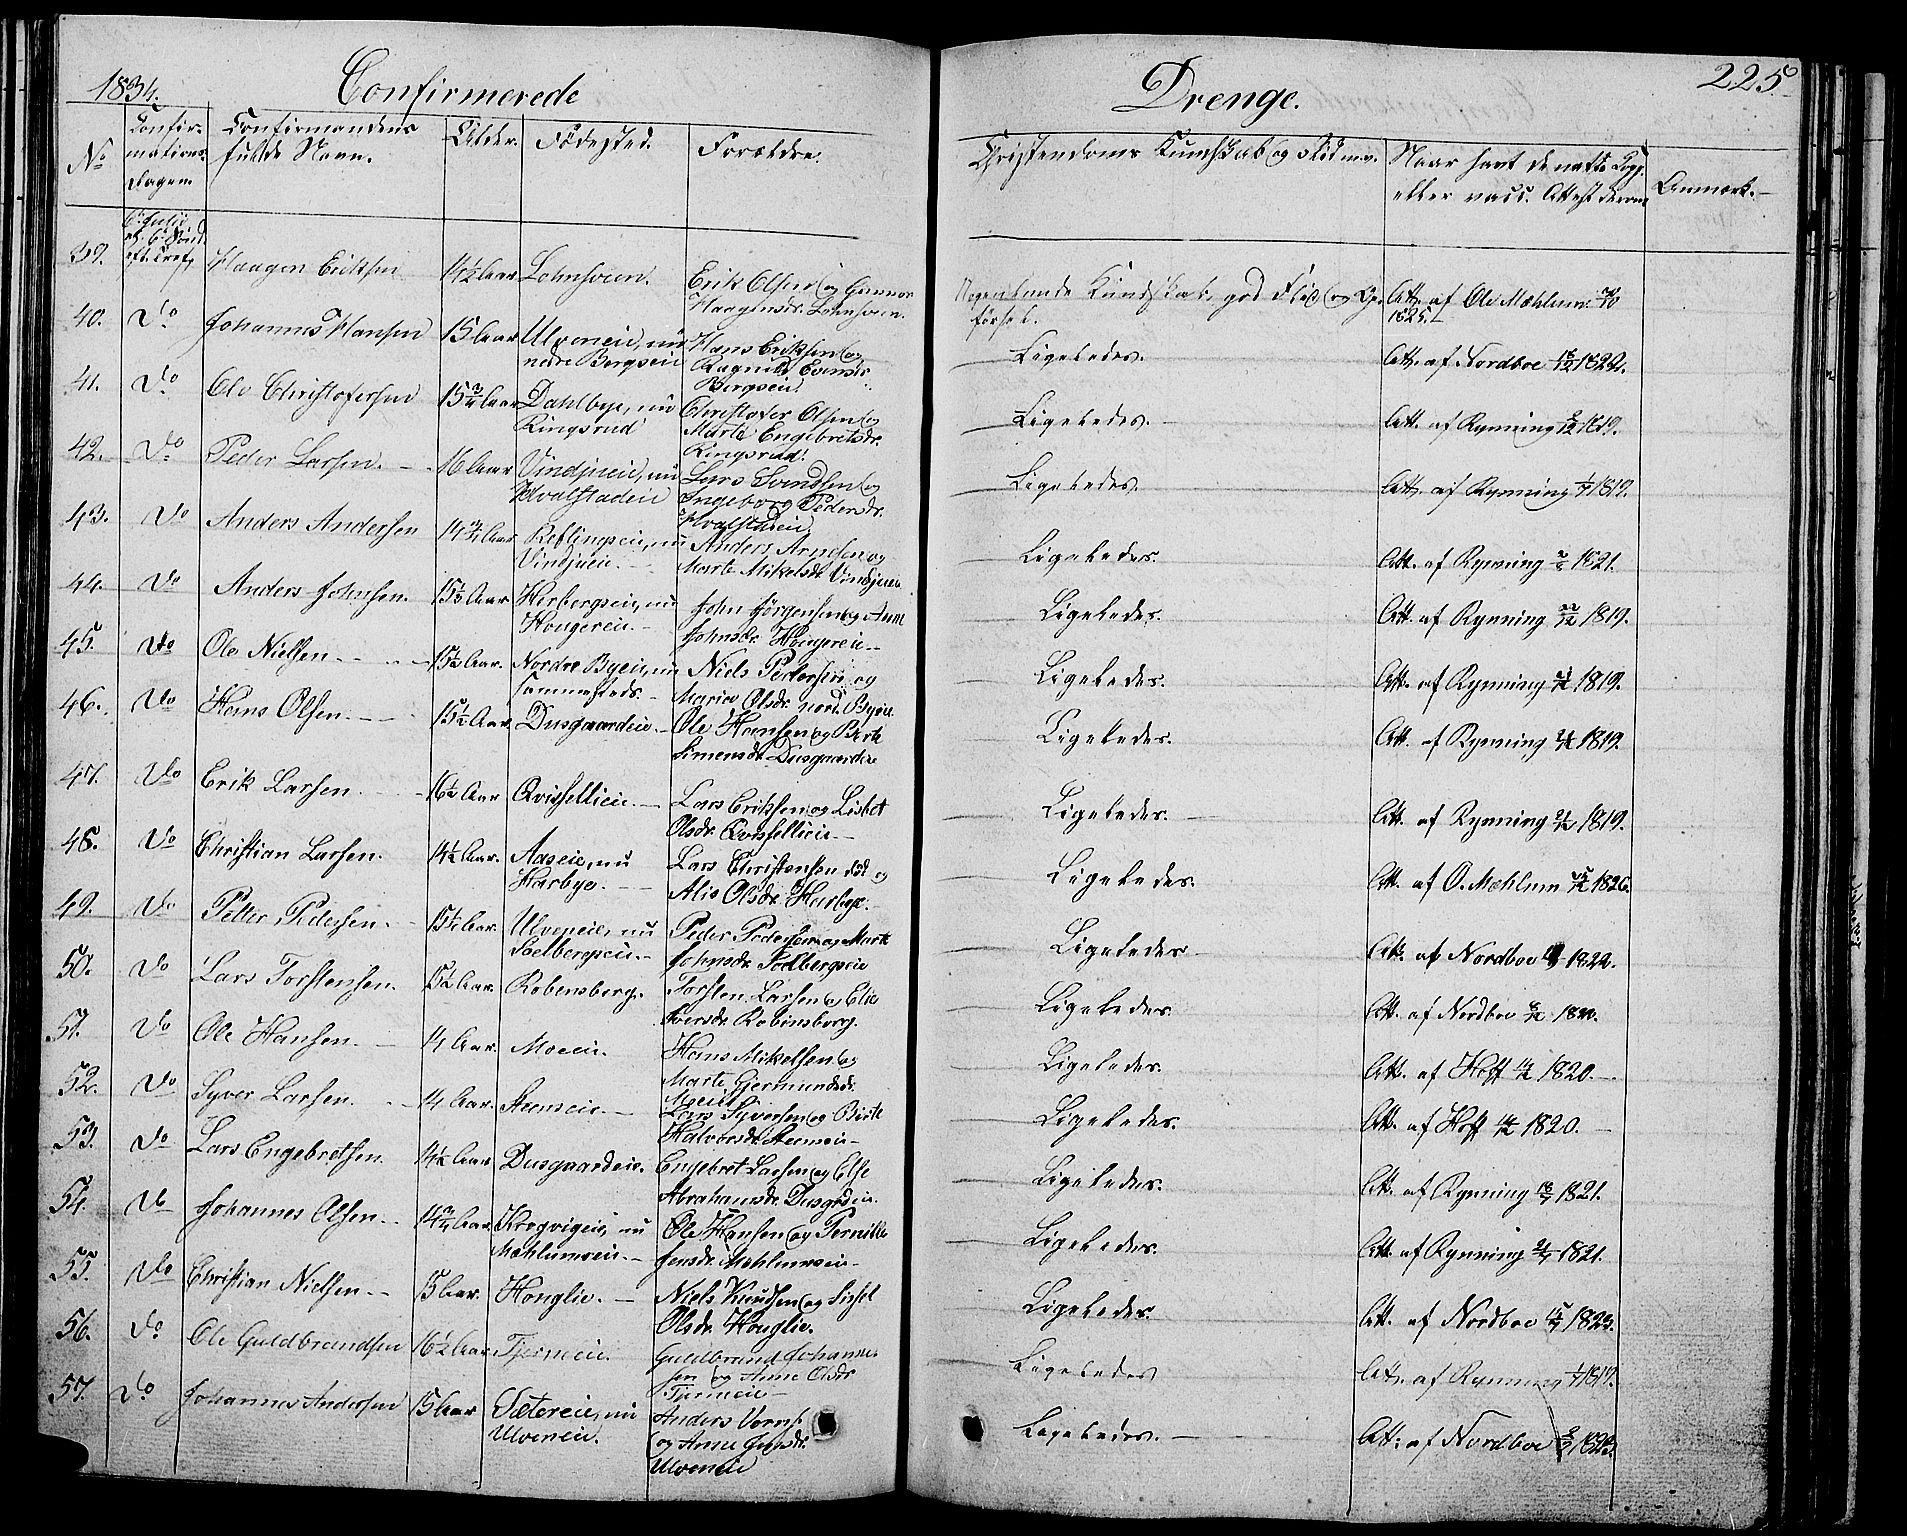 1834. Confirmerede
Drenge. 225.
No
Confir-
mations-
dagen.
Confirmandens
fulde Navn.
Alder.
Fødested.
Forældre.
Christendoms Kundskab og Flid m.v.
Naar havt de natt. Kopp.
eller vacc. Attest derom
Anmærk.
39. Haagen Eriksen 14½ Aar Lohnsveen.
Erik Olsen og Gunnor
Haagensdr. Lohnsveen.
Kundskab, god Flid og Op-
førsel.
Att. af Ole Mæhlum
1825.
40. Do Johannes Hansen 15 Aar Ulveneie, nu
nedre Bergseie
Hans Eriksen og
Ragnild Evensdr
Bergseie.
Ligeledes. Att. af Nordboe 1822.
41. Do Ole Christofersen 15¾ Aar Dahlbye, nu
Ringsrud
Christofer Olsen og
Marte Engebretsdr.
Ringsrud.
Ligeledes. Att. af Rynning 1819.
42. Do Peder Larsen. 16 Aar Vindjueie, nu
Hvalstadeie
Lars Svendsen og
Ingeborg Pedersdr.
Hvalstadeie
Ligeledes. Att. af Rynning 1819.
43. Do Anders Andersen 14¾ Aar Reflingseie, nu
Vindjueie.
Anders Arnesen og
Marte Mikelsdr. Vindjueie
Ligeledes. Att. af Rynning 1821.
44. Do Anders Johnsen. 15½ Aar Herbergseie, nu
Hougereie.
John Jørgensen og Anne
Johnsdr. Hougereie
Ligeledes. Att. af Rynning 1819.
45. Do Ole Nielsen 15½ Aar. Nordre Byeie, nu
sammesteds.
Niels Pedersen og
Marie Olsdr. nord. Byeie
Ligeledes. Att. af Rynning 1819.
46. Do Hans Olsen. 15½ Aar. Dusgaardeie
Ole Hansen og Berte
Simensdr. Dusgaardeie
Ligeledes. Att. af Rynning 1819.
47. Do Erik Larsen. 16½ Aar Qvissellieie.
Lars Eriksen og Lisbet
Olsdr. Qvissellieie
Ligeledes. Att. af Rynning 1819.
48. Do Christian Larsen. 14½ Aar. Aaseie, nu
Harbye.
Lars Christensen død og
Alis Olsdr. Harbye.
Ligeledes. Att. af O. Mæhlum 1826.
49. Do Petter Pedersen. 15½ Aar. Ulveneie, nu
Soelbergseie.
Peder Pedersen og Marte
Johnsdr. Soelbergseie
Ligeledes Att. af Nordboe 1822.
50. Do Lars Torstensen. 15½ Aar. Robensberg.
Torsten Larsen og Elie
Iversdr. Robinsborg.
Ligeledes. Att. af Nordboe
51. Do Ole Hansen. 14 Aar. Moeeie.
Hans Mikelsen og
Marte Gjermundsdr.
Moeeie
Ligeledes. Att. af Hoff 1820.
52. Do Syver Larsen. 14 Aar. Steenseie.
Lars Syversen og Birte
Halvorsdr. Steenseie
Ligeledes. Att. af Hoff 1820.
53. Do Lars Engebretsen. 14½ Aar Dusgaardeie.
Engebret Larsen og Else
Abrahamsdr. Dusgrdeie.
Ligeledes. Att. af Rynning 1821.
54. Do Johannes Olsen. 14¾ Aar. Krogvigeie, nu
Mæhlumseie.
Ole Hansen og Pernille
Jensdr. Mæhlumseie
Ligeledes. Att. af Rynning 1821.
55. Do Christian Nielsen. 15 Aar. Honglie.
Niels Knudsen og Sissel
Olsdr. Honglie.
Ligeledes. Att. af Nordboe 1823.
56. Do Ole Guldbrandsen 16½ Aar Tjerneeie.
Guldbrand Johannes-
sen og Anne Olsdr
Tjerneeie
Ligeledes Att. af Rynning 1819.
57. Do Johannes Andersen 15 Aar Sætereie, nu
Ulveneie.
Anders
og Anne Jensdr.
Ulveneie
Ligeledes. Att. af Nordboe 1823.